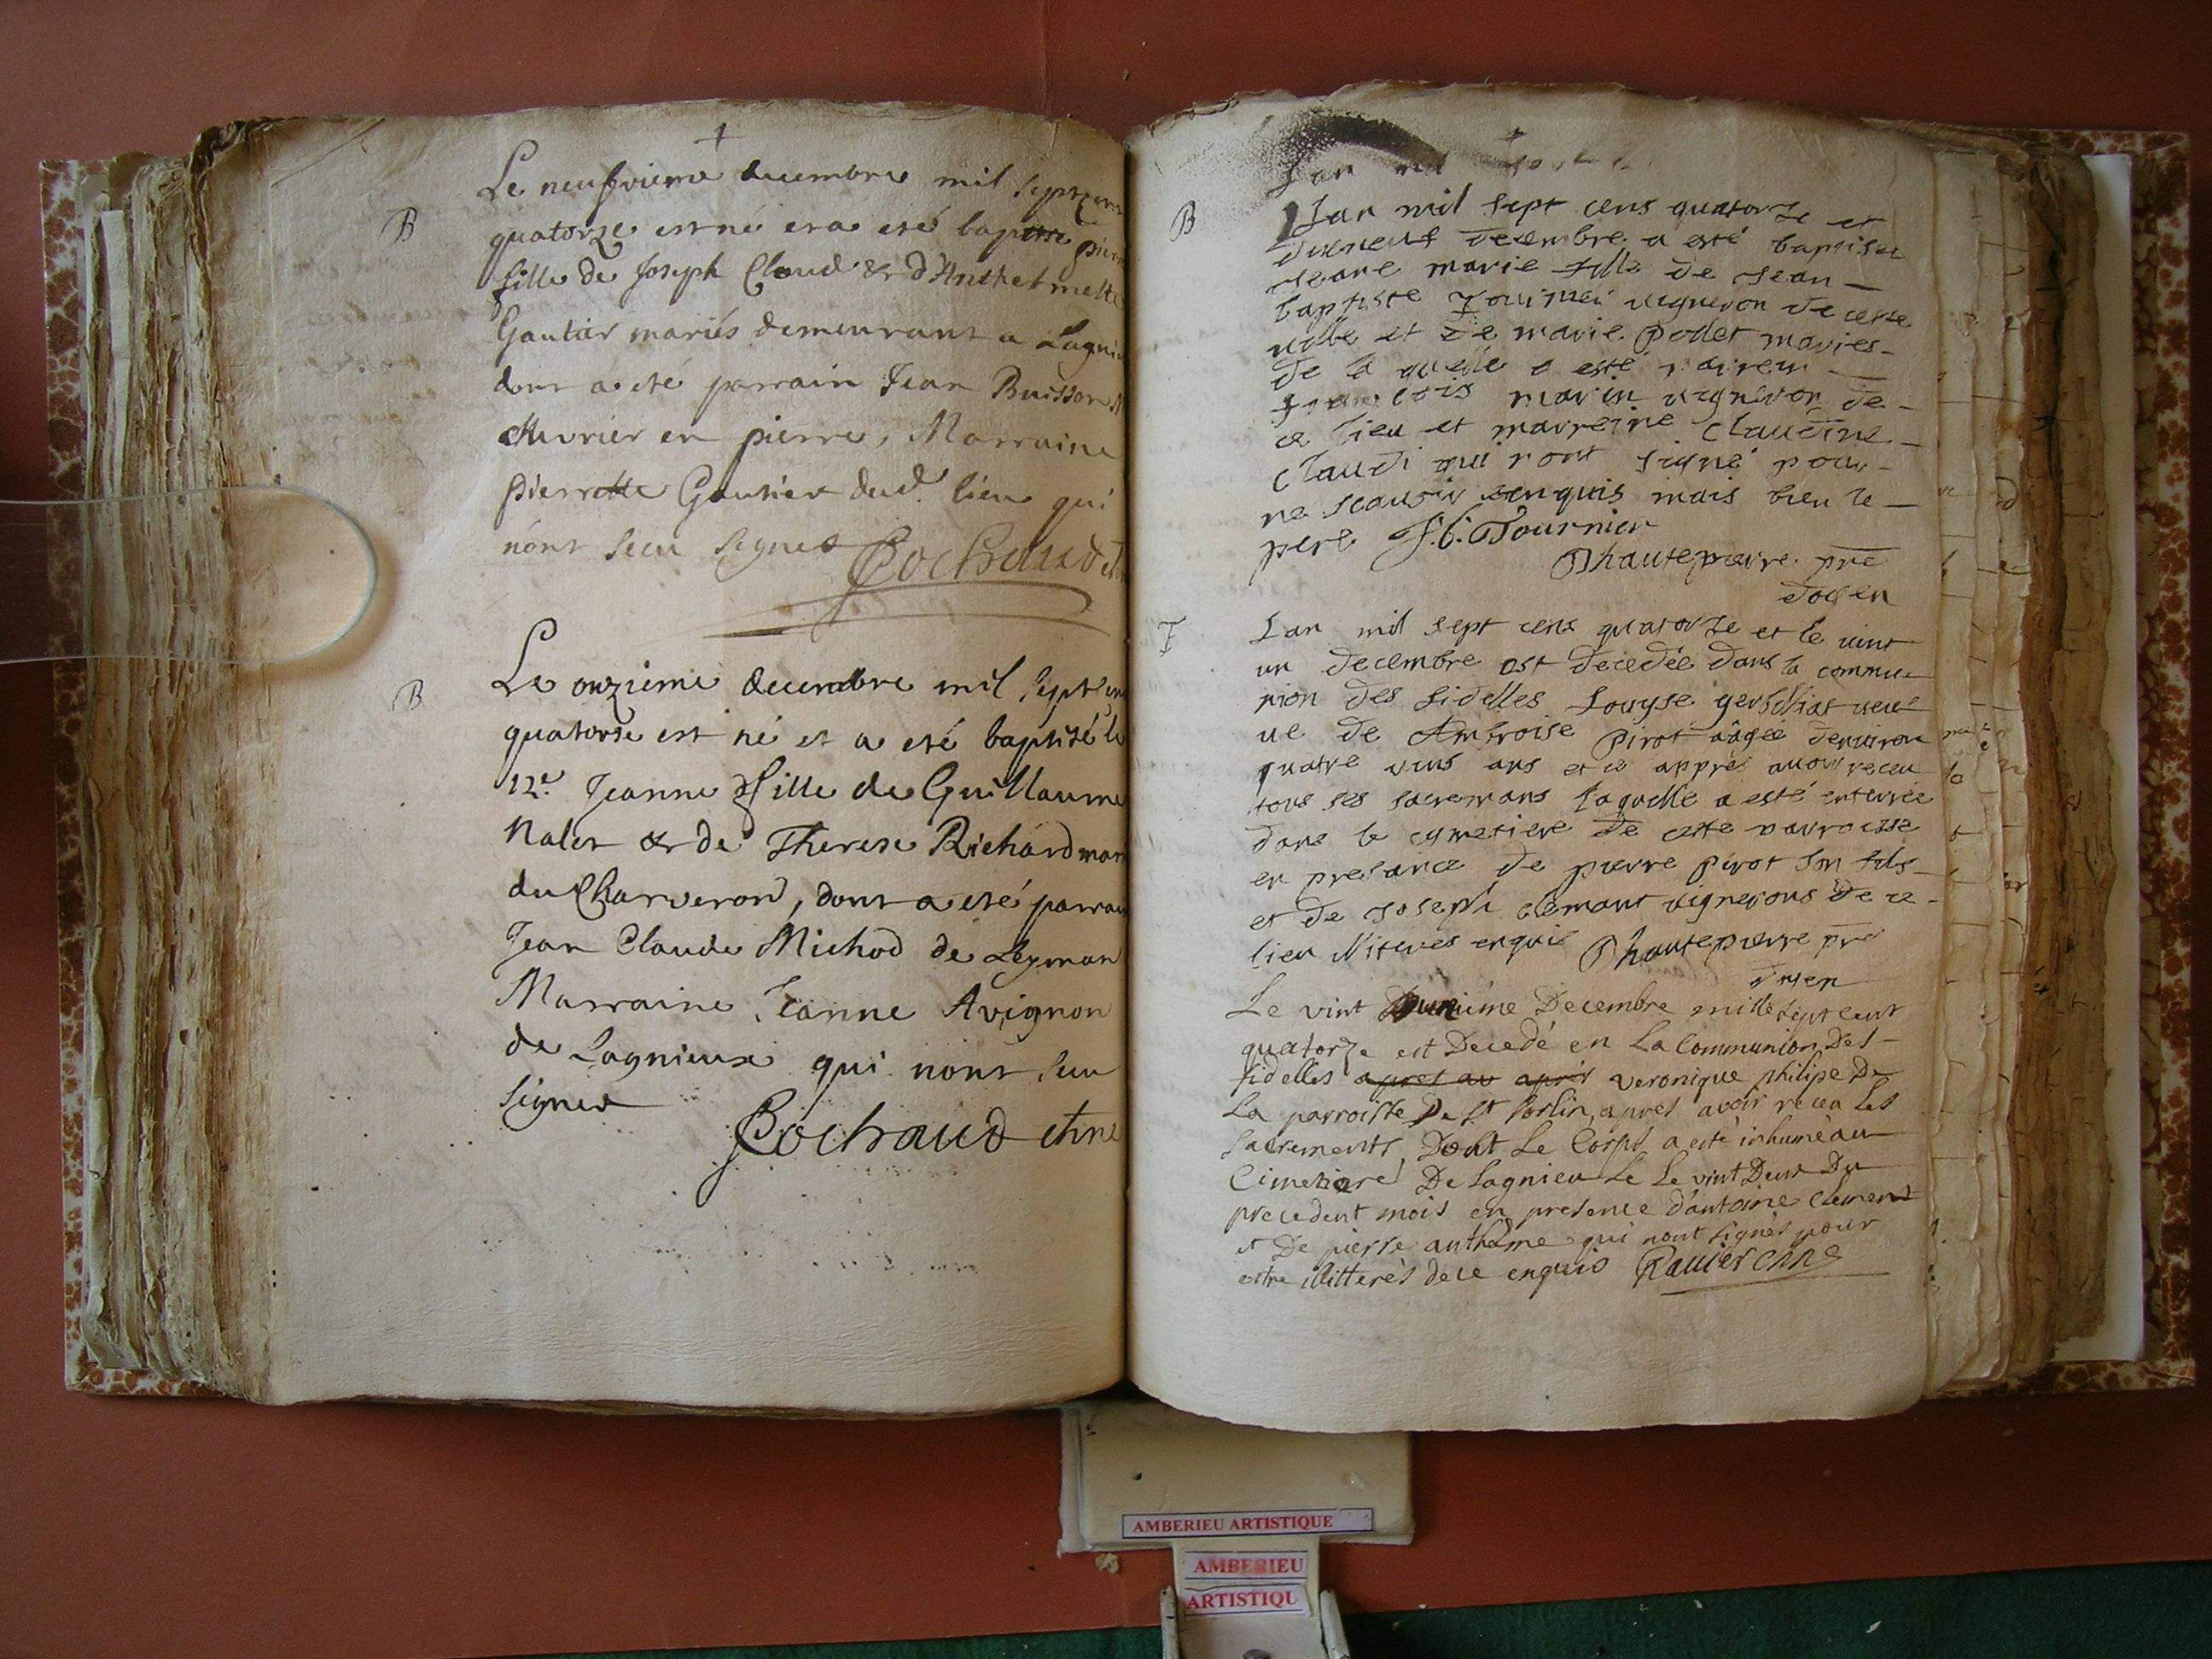 †
Le neufvieme decembre mil sept cens
B
quatorze est né et a eté baptisé
fille de Joseph Claud & d'Anthelmette
Gautier mariés demeurant a Lagni
dont a eté parrain Jean Buisson
ouvrier en pierre, Marraine
pierrette Gautier dud. lieu qui
n'ont sceu signer Cochaud
B
Le onzieme decembre mil sept
quatorse est né et a eté baptisé le
12e. Jeanne fille de Guillaume
Nalet & de Therese Richard
du Charveron, dont a eté parrain
Jean Claude Michod de Leyman
Marraine Jeanne Avignon
de Lagnieux qui n'ont sceu
signer
Cochaud chne
†
Lan mil
B
Lan mil sept cens quatorze et
dixneuf decembre a esté baptisée
Jeane marie fille de Jean
baptiste vigneron de cette
ville et de marie podet maries
de laquelle a esté parrein
francois marin vigneron de
ce lieu et marreine claudine
claudi qui n ont signé pour
ne scavoir enquis mais bien le
pere J. B. Tournier
Dhautepierre. pre
doyen
F
Lan mil sept cens quatorze et le vint
un decembre est decedée dans la commu
nion des fidelles Louyse veu
ve de Ambroise pirot aagée denviron
quatre vins ans et ce apprés avoir receu
tous ses sacremans laquelle a esté enterrée
dans le cymetiere de cette parroisse
en presance de pierre pirot son fils
et de Joseph clemant vignerons de ce
lieu illiterés enquis Dhautepierre pre
doyen
Le vint Decembre mille sept cent
quatorze est Decedé en La Communion Des
fidelles apres av apres veronique philipe De
La parroisse De St Sorlin, apres avoir recea Les
sacrements, Dont Le Corps a eté inhumé au
Cimetiere De Lagnieu Le Le vint Deux Du
precedent mois en presence d'antoine clement
et De pierre anthelme qui nont signés pour
estre illitterés de ce enquis Ravier chne
AMBERIEU ARTISTIQUE
AMBERIEU
ARTISTIQU